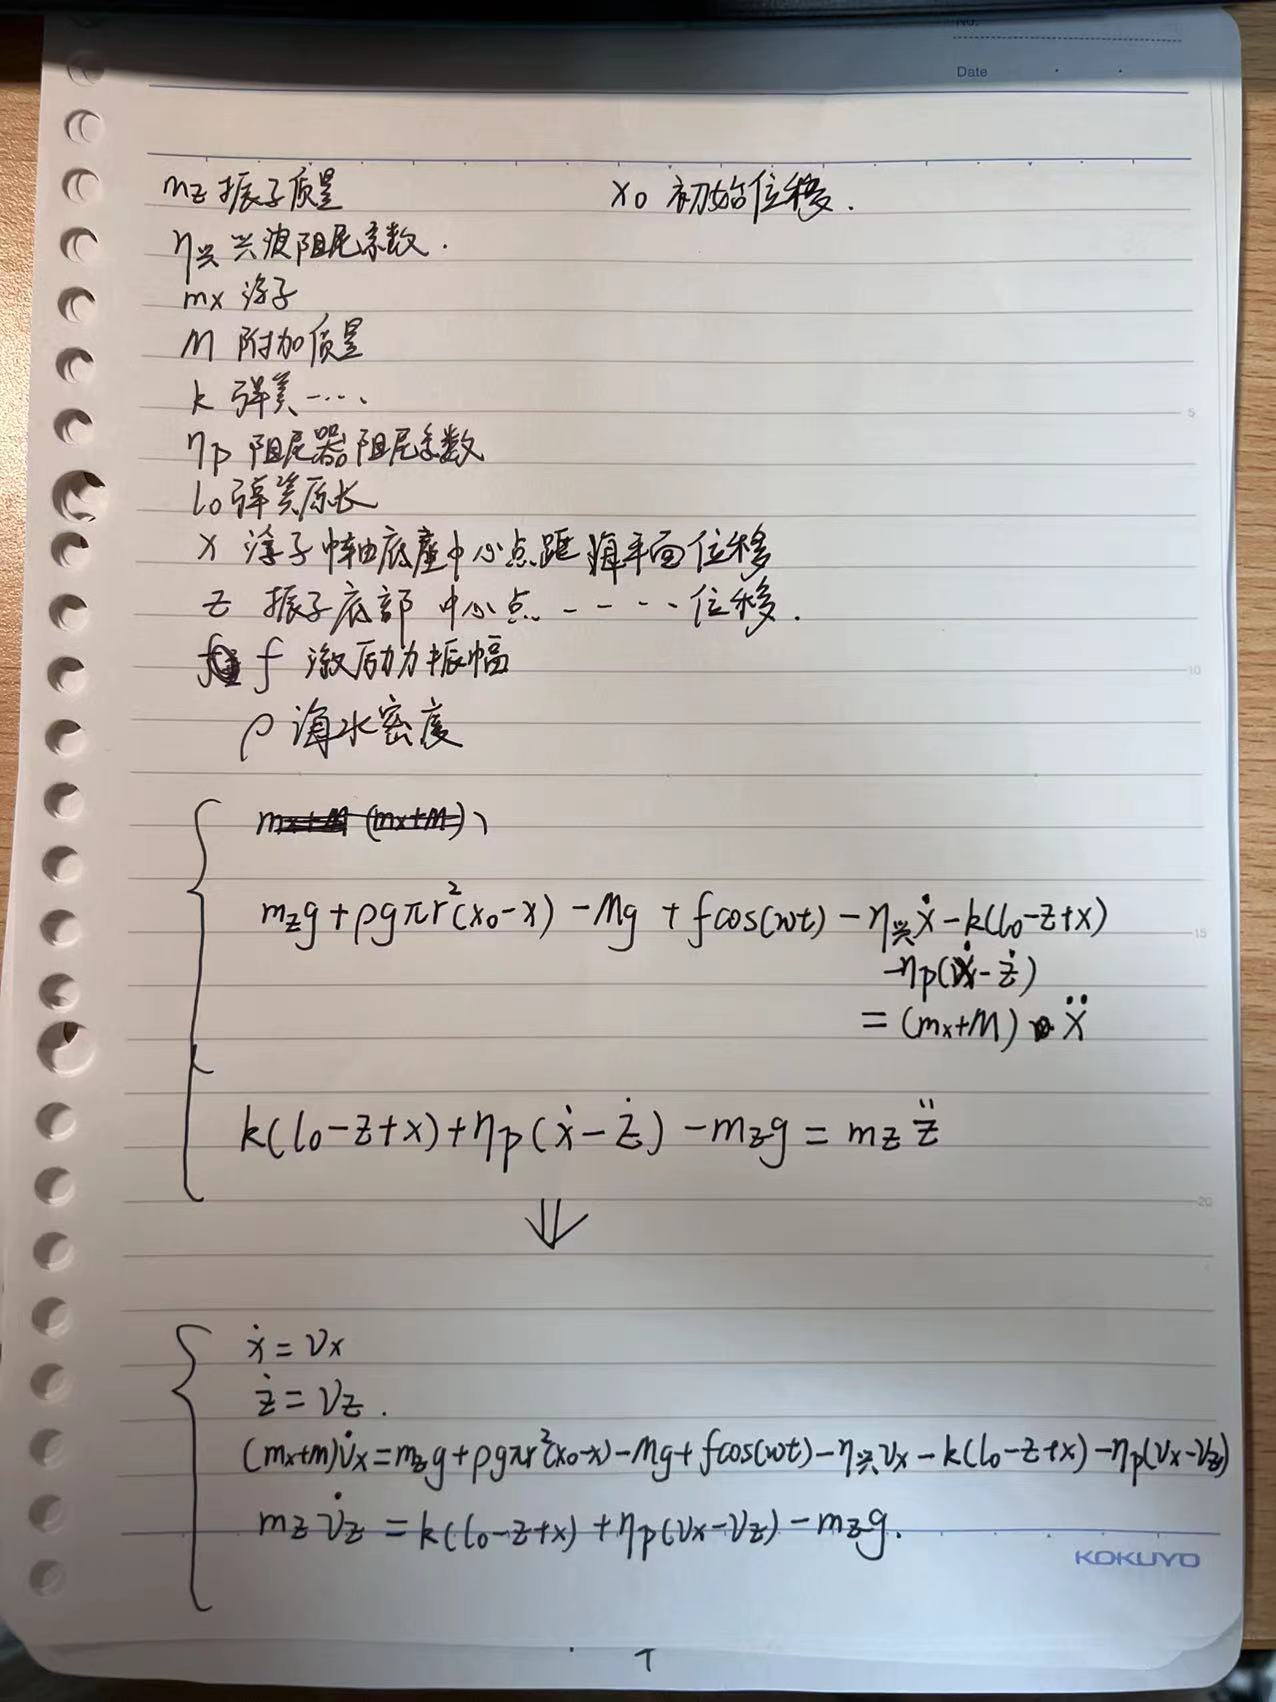 No.
Date
mz 振子质量
x0 初始位移.
η兴 兴波阻尼系数.
mx 浮子
M 附加质量
k 弹簧....
5
ηp 阻尼器阻尼系数
l0 弹簧原长
x 浮子中轴底座中心点距海平面位移
z 振子底部 中心点 - - - - 位移.
f 激励力振幅
10
ρ 海水密度
mx+M (mx+M)
mzg+ρgπr²(x0-x) -Mg + fcos(wt) - η兴ẋ - k(l0-z+x)
15
-ηp(ẋ-ż)
= (mx+M) ẍ
k(l0-z+x)+ηp(ẋ-ż) -mzg = mz z̈
⇓
20
ẋ = Vx
ż = Vz.
(mx+m)V̇x=mzg+ρgπr²(x0-x)-Mg+fcos(wt)-η兴Vx-k(l0-z+x)-ηp(Vx-Vz)
mz V̇z = k(l0-z+x) +ηp(Vx-Vz) -mzg.
KOKUYO